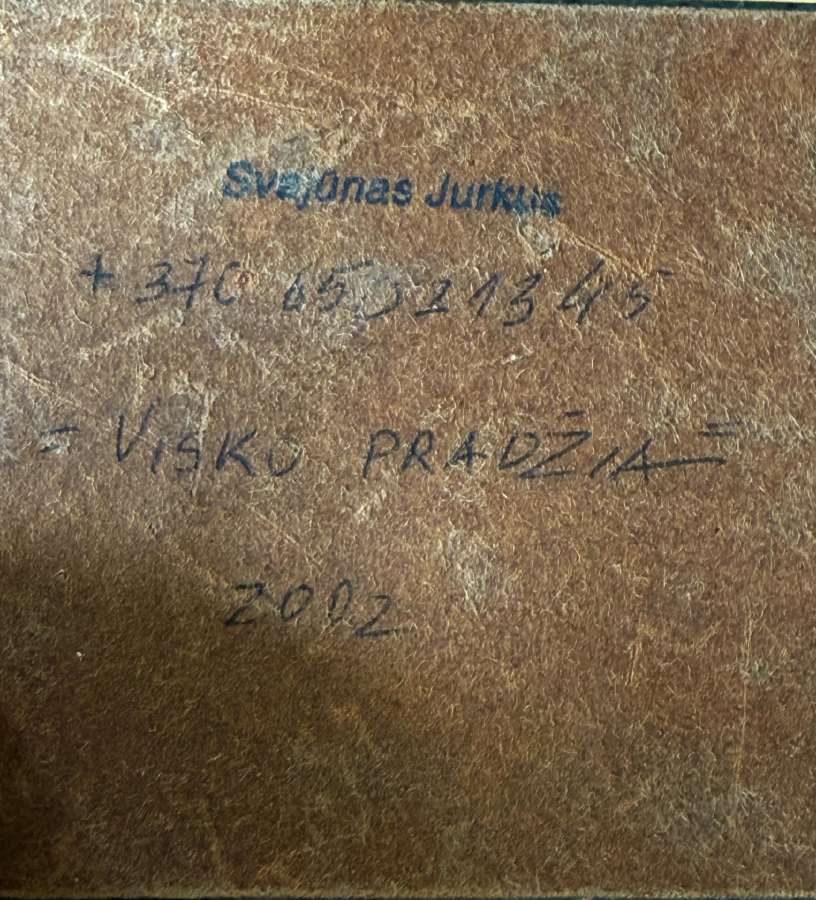 Svajūnas Jurkus
+370 650 21345
= VISKO PRADŽIA =
2002